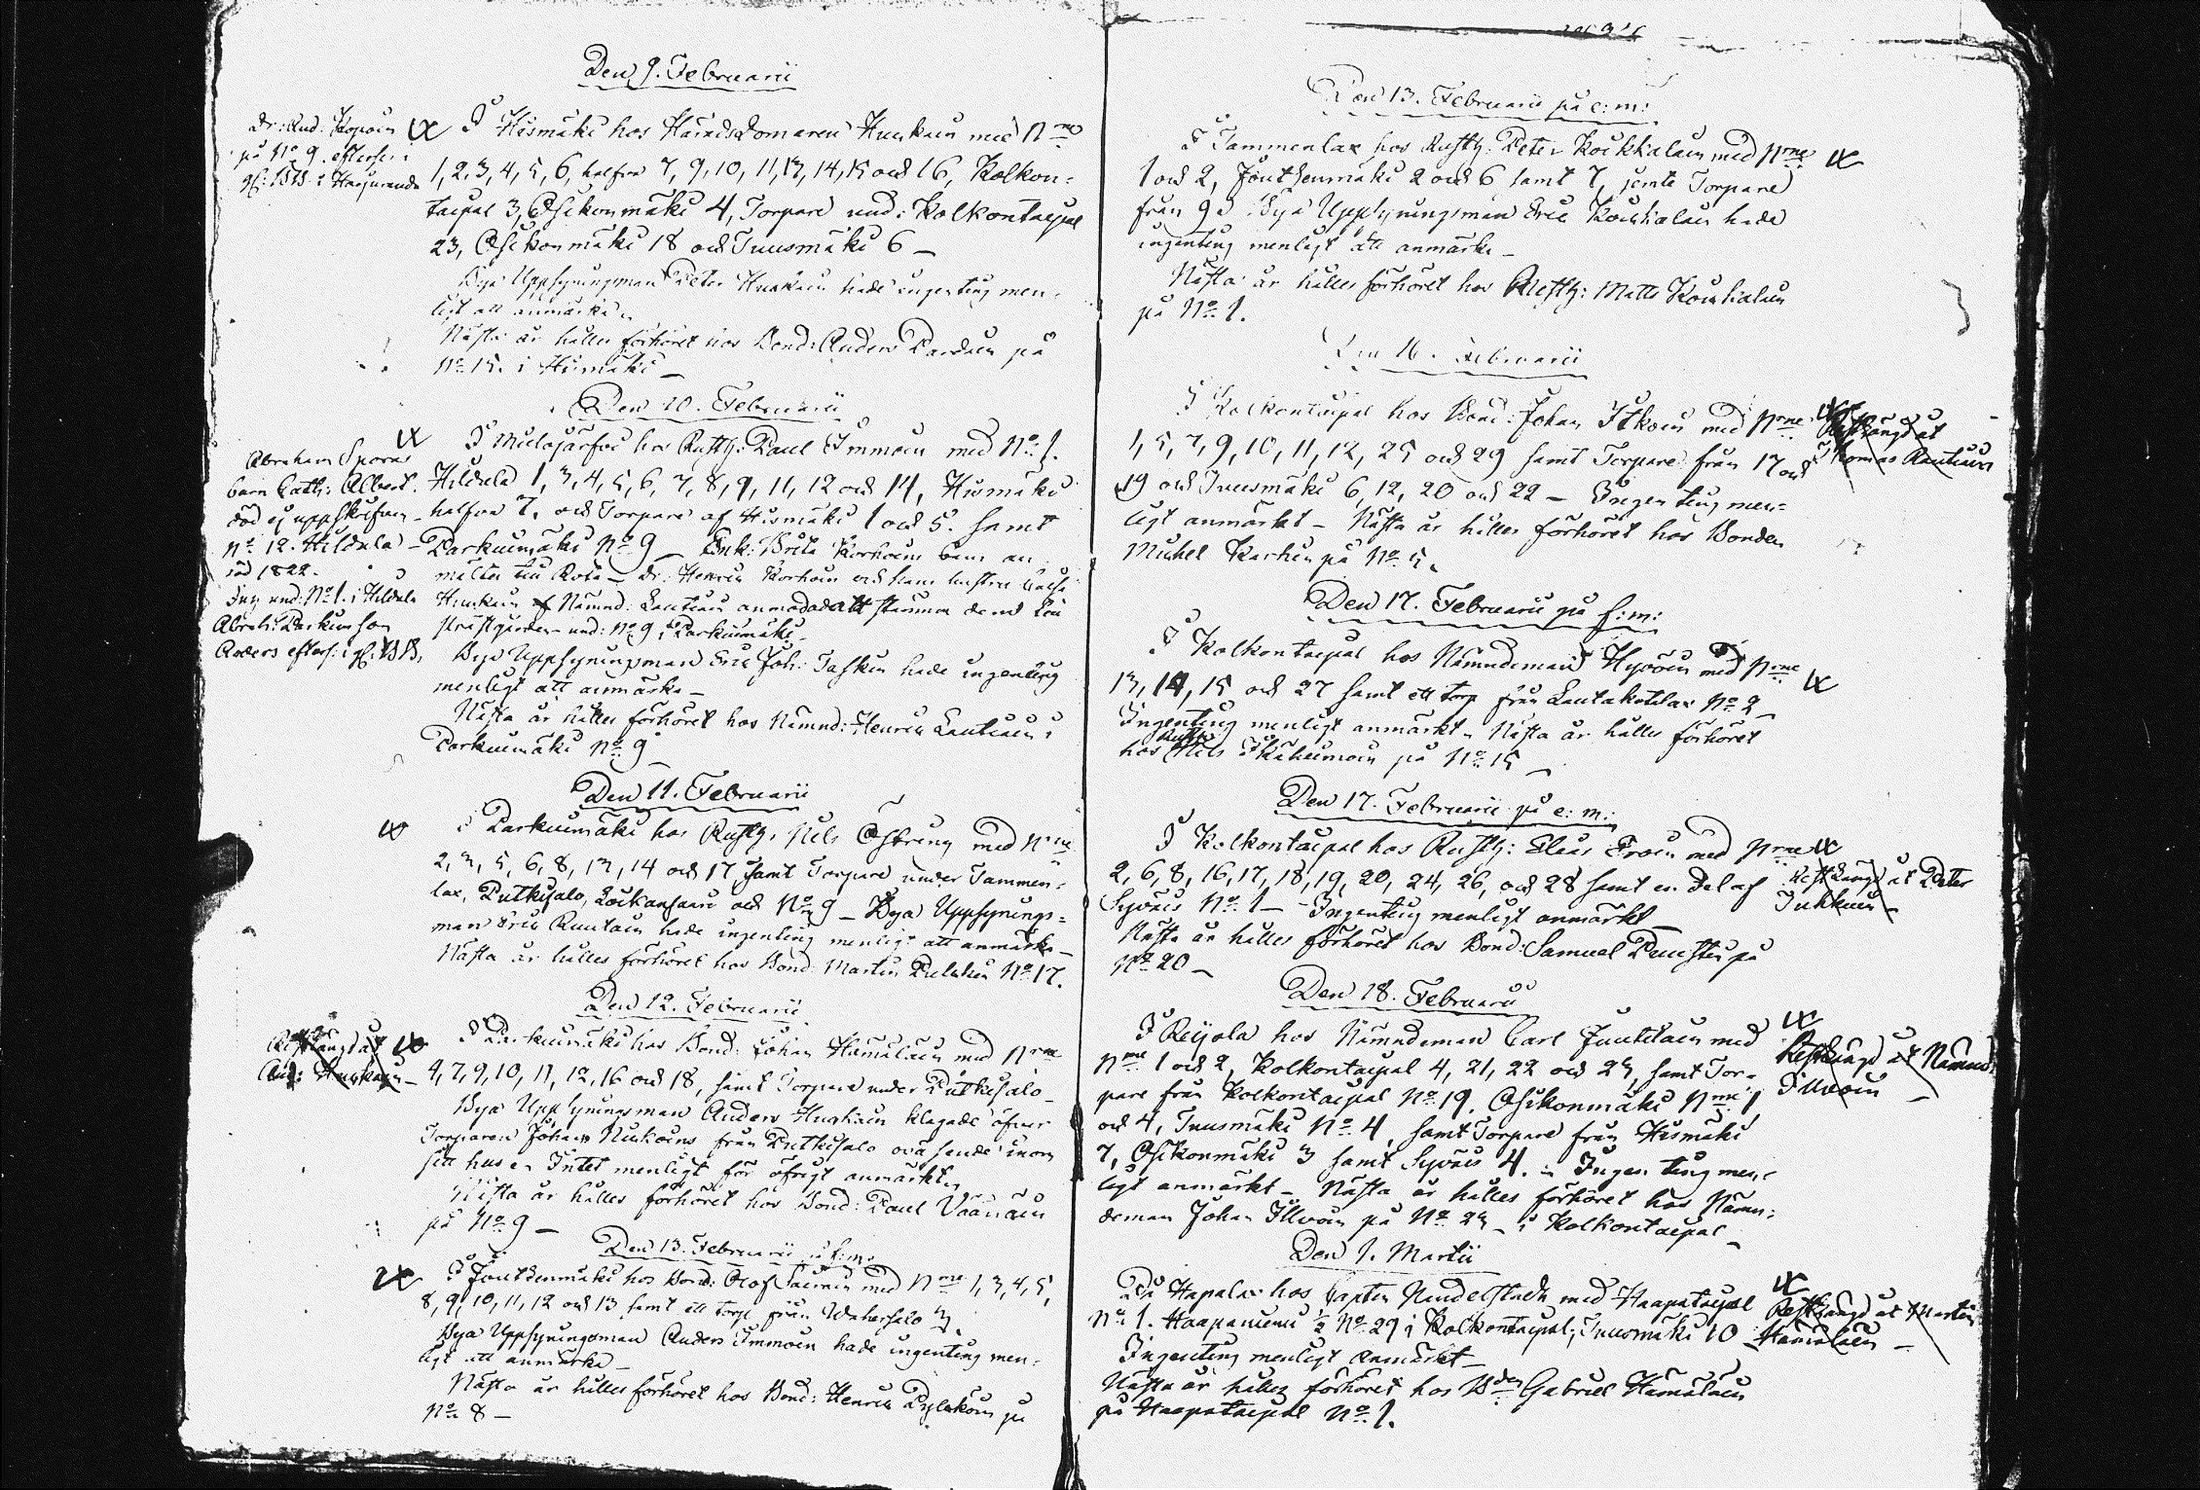 Den 9. Februarii
Dr: And: Kopoin
på No 9. efterser i
gf: 1818 i Haapuranda
I Hismäki hos HäradsDomaren Huuhain med Nrne
1, 2, 3, 4, 5, 6, halfva 7, 9, 10, 11, 13, 14, 15 och 16, Kolkon=
taipal 3, Osikonmäki 4, Torpare und: Kolkontaipal
23, Osikonmäki 18 och Tuusmäki 6 —
Bya Uppsyningsman Peter Huuhain hade ingenting men=
ligt att anmärka.
Nästa år hålles förhöret hos Bond: Anders Pardain på
No 15. i Hismäki —
Den 10. Februarii
Abraham Sporas
barn Cath: Albert.
död ej uppskrifven
No 12. Hildula —
död 1822.
Inh und: No 1. i Hildula
Abrah: Parkuin son
Anders efters: i gf: 1818.
I Mielojärfvi hos Rusth: Paul Immoin med No 1.
Hildula 1, 3, 4, 5, 6, 7, 8, 9, 11, 12 och 14, Hismäki
halfva 7, och Torpare af Hismäki 1 och 5. samt
Parkuimäki No 9 — Enk: Brita Korhoin barn an
mältes till Rota — Dr: Henric Korhoin och hans hustru
Huuhain af Nämnd: Lautiain anmodad att stämma
und: No 9 i Parkuimäki.
Bya Uppsyningsman Eric Joh: Taskin hade ingenting
menligt att anmärka —
Nästa år hålles förhöret hos Nämnd: Henric Lautiain i
Parkuimäki No 9
Den 11. Februarii
i Parkuimäki hos Rusth: Nils Östring med Nrne
2, 3, 5, 6, 8, 13, 14 och 17 samt Torpare under Tammen=
lax, Putkisalo, Loikansaari och No 9 — Bya Uppsynings=
man Eric Rautain hade ingenting menligt att anmärka —
Nästa år hålles förhöret hos Bond: Martin Pulkin No 17.
Den 12. Februarii
Restlängd åt
And: Huuhain —
I Parkuimäki hos Bond: Johan Hämäläin med Nrne
4, 7, 9, 10, 11, 12, 16 och 18, samt Torpare under Putkisalo —
Bya Uppsyningsman Anders Huuhain klagade öfver
Torparen Johan Nukoins från Putkisalo oväsende inom
sitt hus — Intet menligt för öfrigt anmärktes
Nästa år hålles förhöret hos Bond: Paul Väänäin
på No 9 —
Den 13. Februarii på f: m:
I Joutsenmäki hos Bond: Olof med Nrne 1, 3, 4, 5,
8, 9, 10, 11, 12 och 13 samt ett torp från Wahersalo 3
Bya Uppsyningsman Anders Immoin hade ingenting men=
ligt att anmärka —
Nästa år hålles förhöret hos Bond: Henric Pylkköin på
No 8 —
Den 13. Februarii på e: m:
I Tammenlax hos Rusth: Peter Koikkalain med Nrne
1 och 2, Joutsenmäki 2 och 6 samt 7, jemte Torpare
från 9. Bya Uppsyningsman Eric Koikkalain hade
ingenting menligt att anmärka —
Nästa år hålles förhöret hos Rusth: Matts Koikkalain
på No 1.
Den 16. Februarii
I Kolkontaipal hos Bond: Johan Itkoin med Nrne
1, 5, 7, 9, 10, 11, 12, 25 och 29 samt Torpare från 17 och
19 och Tuusmäki 6, 12, 20 och 22 — Ingenting men=
ligt anmärkt — Nästa år hålles förhöret hos Bonden
Michel Karhin på No 5.
Restlängd åt
Thomas Rautiain
Den 17. Februarii på f: m:
I Kolkontaipal hos Nämndeman Hyvöin med Nrne
13, 14, 15 och 27 samt ett torp från Lautakotalax No 2 —
Ingenting menligt anmärkt — Nästa år hålles förhöret
hos Rusth: Nils Ikäheimoin på No 15 —
Den 17. Februarii på e: m:
I Kolkontaipal hos Rusth: Elias Eroin med Nrne
2, 6, 8, 16, 17, 18, 19, 20, 24, 26, och 28 samt en del af
Syväis No 1 — Ingenting menligt anmärkt —
Nästa år hålles förhöret hos Bond: Samuel Puustin på
No 20 —
Restlängd åt Peter
Juhkuin —
Den 18. Februarii
I Reijola hos Nämndeman Carl Juutilain med
Nrne 1 och 2, Kolkontaipal 4, 21, 22 och 23, samt Tor=
pare från Kolkontaipal No 19. Osikonmäki Nrne 1
och 4, Tuusmäki No 4, samt Torpare från Hismäki
7, Osikonmäki 3 samt Syväis 4. — Ingenting men=
ligt anmärkt — Nästa år hålles förhöret hos Näm=
deman Johan Illvoin på No 23 — i Kolkontaipal —
Restlängd åt Nämnd:
Illvoin —
Den 1. Martii
På Hapalax hos Capten Nandelstadh med Haapataipal
No 1. Haapaniemi ½ No 29 i Kolkontaipal, Tuusmäki 10
Ingenting menligt anmärkt —
Nästa år hålles förhöret hos Bden Gabriel Hämäläin
på Haapataipal No 1.
Restlängd åt Martin
Hämäläin —